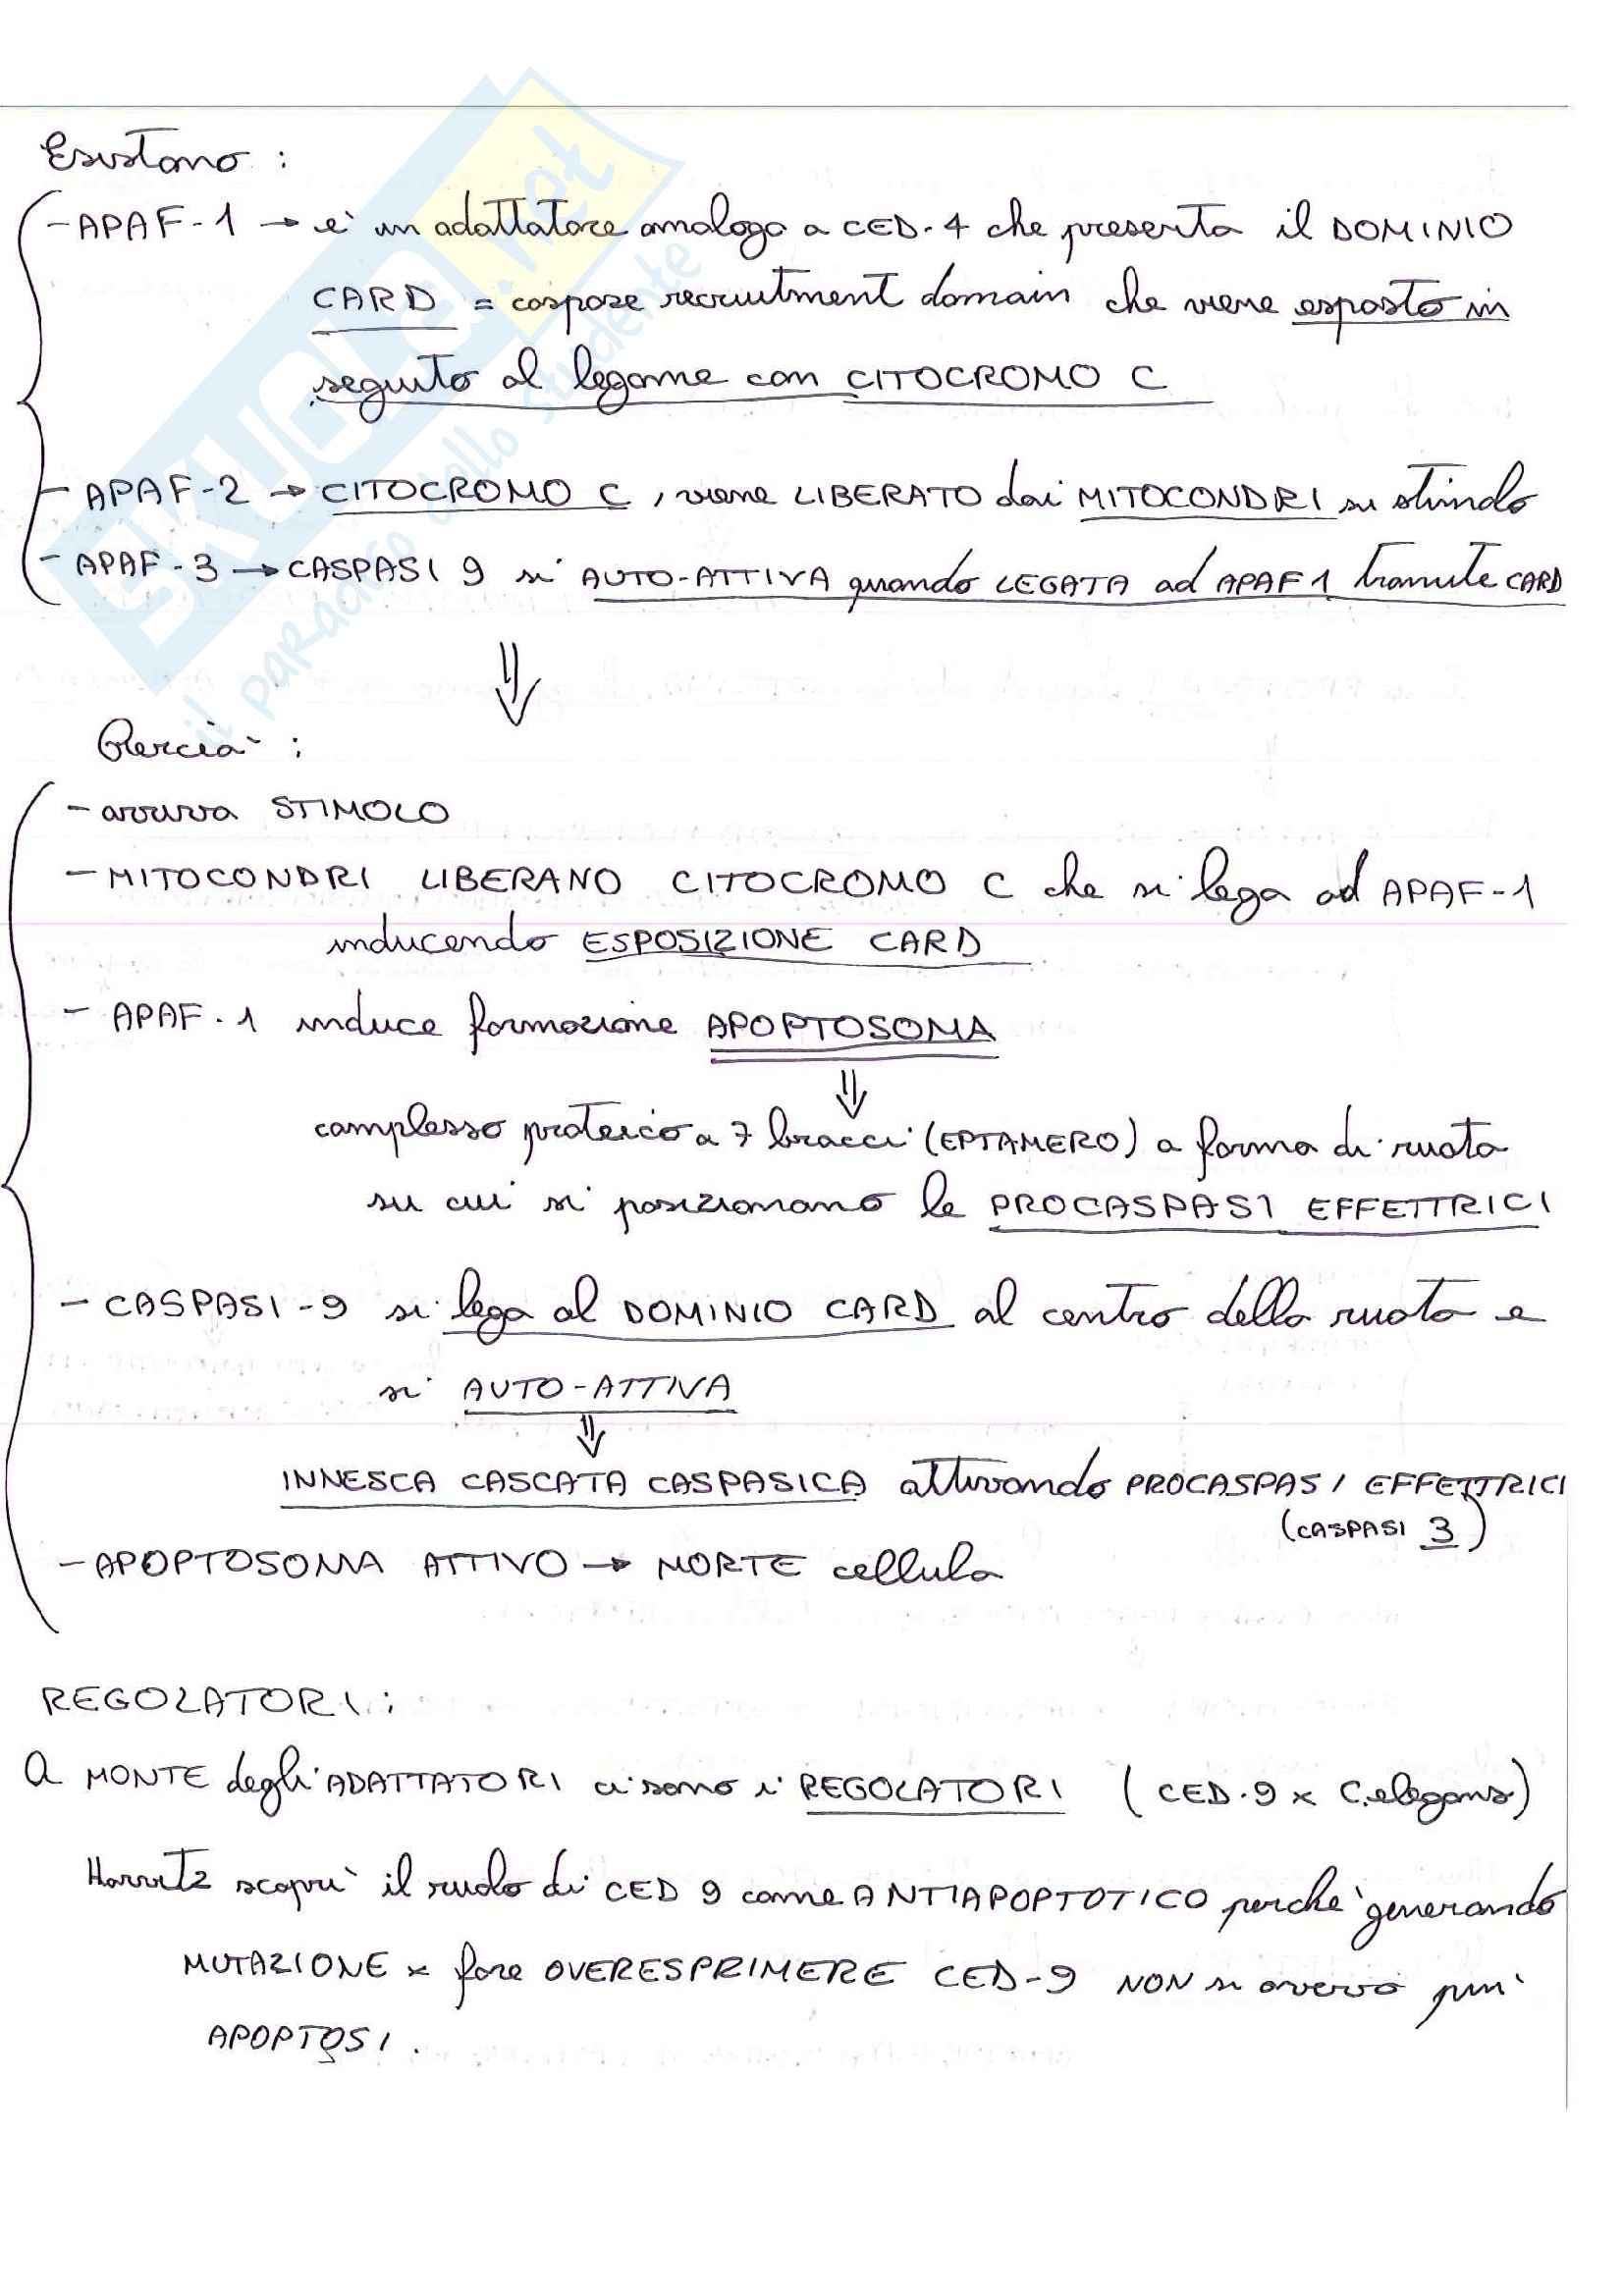 Esistono :
- APAF-1 → è un adattatore analogo a CED-4 che presenta il DOMINIO
CARD = caspase recruitment domain che viene esposto in
seguito al legame con CITOCROMO C
- APAF-2 → CITOCROMO C, viene LIBERATO dai MITOCONDRI su stimolo
- APAF-3 → CASPASI 9 si AUTO-ATTIVA quando LEGATA ad APAF1 tramite CARD
⇓
Perciò :
- arriva STIMOLO
- MITOCONDRI LIBERANO CITOCROMO C che si lega ad APAF-1
inducendo ESPOSIZIONE CARD
- APAF-1 induce formazione APOPTOSOMA
⇓
complesso proteico a 7 bracci (EPTAMERO) a forma di ruota
su cui si posizionano le PROCASPASI EFFETTRICI
- CASPASI-9 si lega al DOMINIO CARD al centro della ruota e
si AUTO-ATTIVA
⇓
INNESCA CASCATA CASPASICA attivando PROCASPASI EFFETTRICI
(CASPASI 3)
- APOPTOSOMA ATTIVO → MORTE cellula
REGOLATORI :
A MONTE degli ADATTATORI ci sono i REGOLATORI (CED-9 x C.elegans)
Horvitz scoprì il ruolo di CED 9 come ANTIAPOPTOTICO perché generando
MUTAZIONE x fare OVERESPRIMERE CED-9 NON si aveva più
APOPTOSI.
SKUOLA.net
il paradiso dello studente